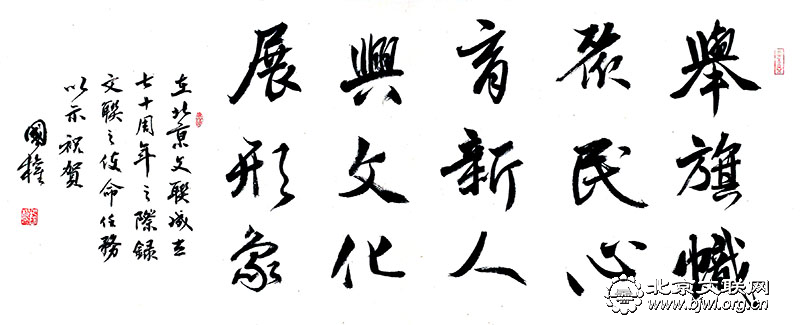 舉旗幟
聚民心
育新人
興文化
展形象
在北京文联成立
七十周年之際録
文聯之使命任務
以示祝贺
國權
北京文联网
www.bjwl.org.cn